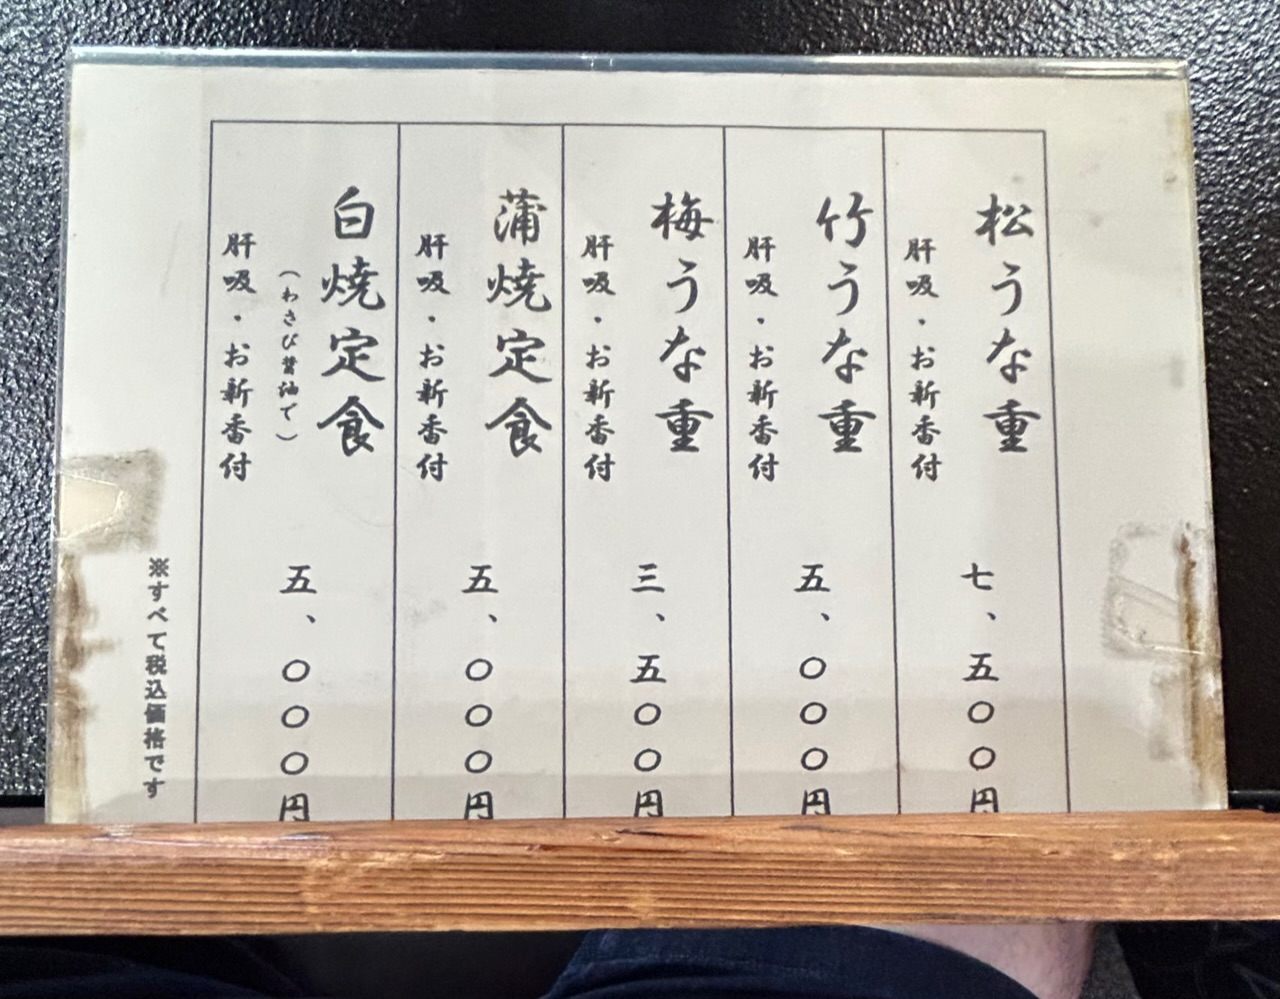 松うな重
肝吸・お新香付
七、五〇〇円
竹うな重
肝吸・お新香付
五、〇〇〇円
梅うな重
肝吸・お新香付
三、五〇〇円
蒲焼定食
肝吸・お新香付
五、〇〇〇円
白焼定食
(わさび醤油で)
肝吸・お新香付
五、〇〇〇円
※すべて税込価格です